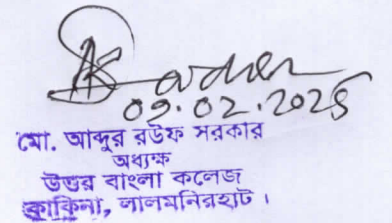 09.02.2025
মো. আব্দুর রউফ সরকার
অধ্যক্ষ
উত্তর বাংলা কলেজ
কাকিনা, লালমনিরহাট।